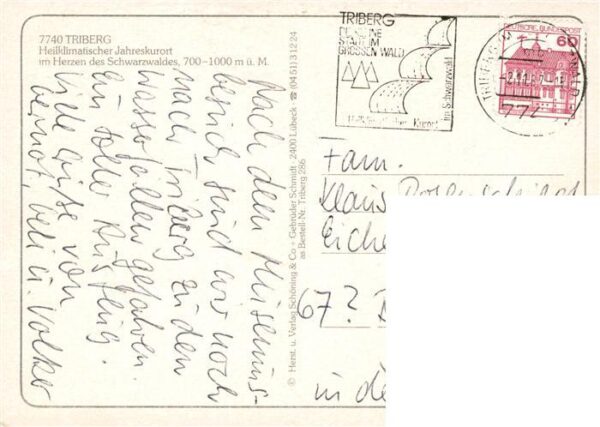 7740 TRIBERG
Heilklimatischer Jahreskurort
im Herzen des Schwarzwaldes, 700–1000 m ü. M.
Nach dem Museums-
besuch sind wir noch
nach Triberg zu den
Wasserfällen gefahren.
Ein toller Ausflug.
Viele Grüße von
u. Volker
© Herst. u. Verlag Schöning & Co + Gebrüder Schmidt · 2400 Lübeck ☎ (04 51) 3 12 24
as Bestell-Nr. Triberg 286
TRIBERG
STADT IM
GROSSEN WALD
Kurort
im Schwarzwald
TRIBERG
77
DEUTSCHE BUNDESPOST
60
Fam.
Klaus
Eiche
67?
in de